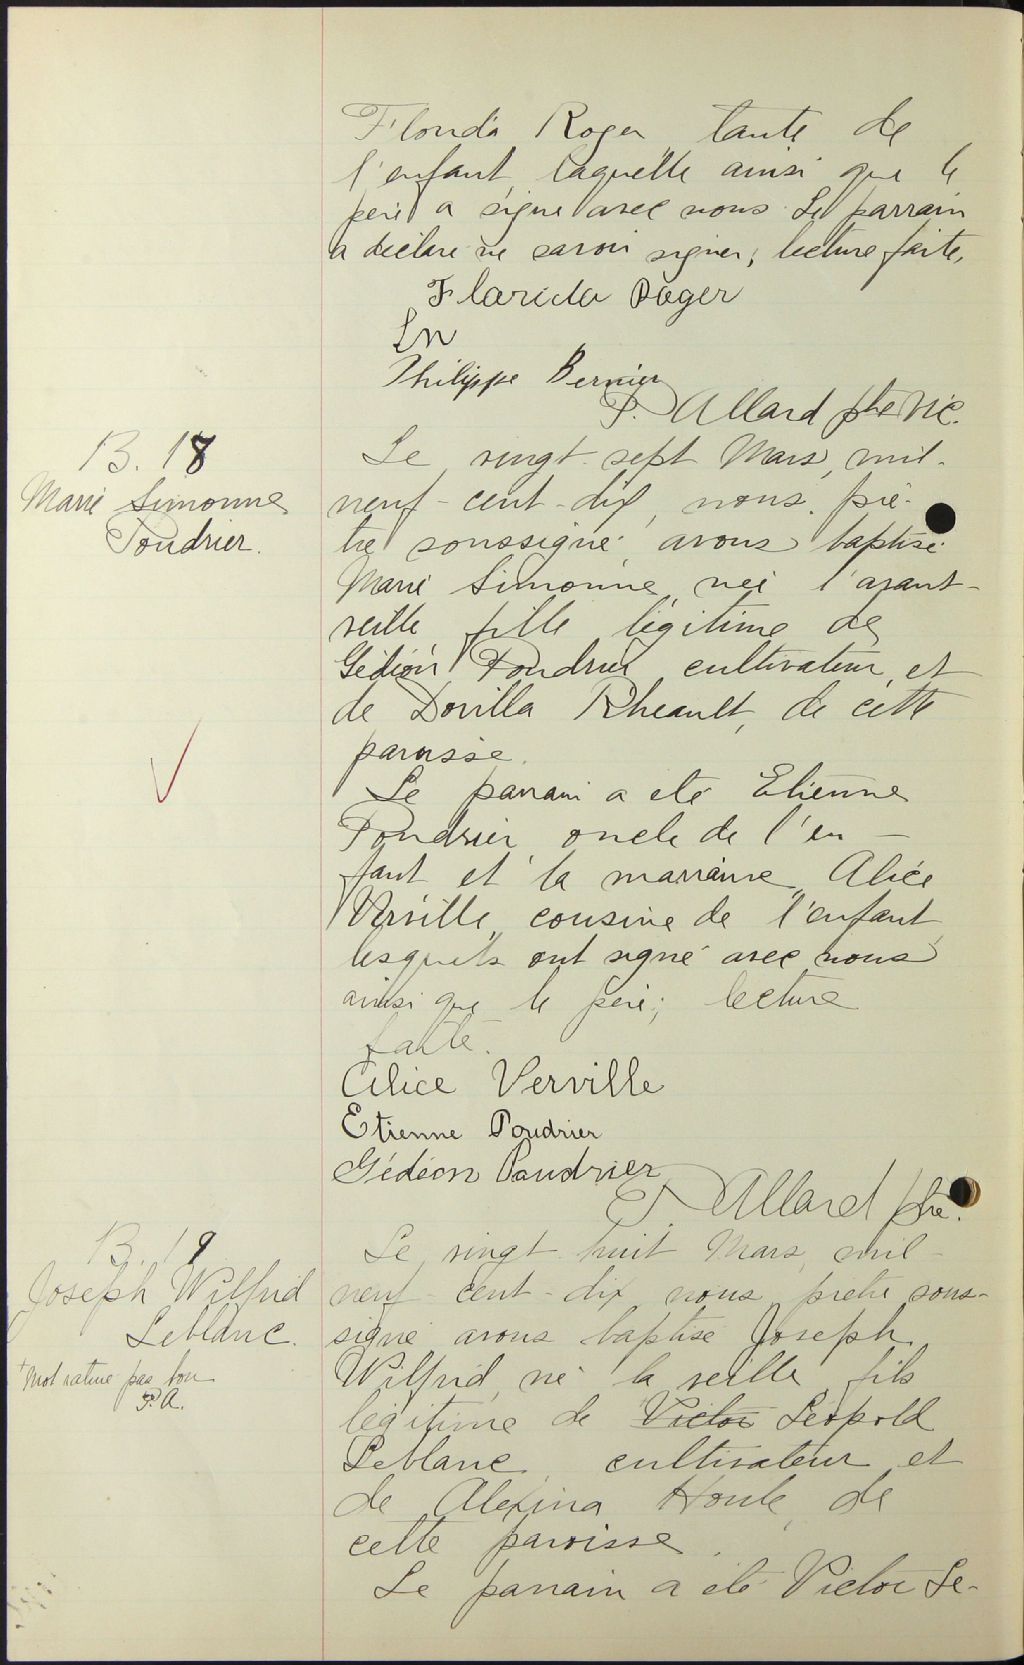 Florida Roger tante de
l'enfant, laquelle ainsi que le
père a signé avec nous. Le parrain
a déclaré ne savoir signer; lecture faite.
Florida Roger
Philippe Bernier
P. Allard ptre vic.
B. 18
Marie Simonne
Poudrier.
Le vingt-sept Mars, mil-
neuf-cent-dix, nous, prê-
tre soussigné avons baptisé
Marie Simonne, née l'avant-
veille, fille légitime de
Gédéon Poudrier cultivateur, et
de Dovilla Rheault, de cette
paroisse.
Le parrain a été Etienne
Poudrier oncle de l'en-
fant et la marraine, Alice
Verville, cousine de l'enfant,
lesquels ont signé avec nous
ainsi que le père; lecture
faite.
Alice Verville
Etienne Poudrier
Gédéon Poudrier
P. Allard ptre.
B. 19
Joseph Wilfrid
Leblanc.
+ Mot raturé pas bon
P.A.
Le vingt-huit Mars, mil-
neuf-cent-dix nous prêtre sous-
signé avons baptisé Joseph
Wilfrid, né la veille, fils
légitime de Victor Léopold
Leblanc, cultivateur et
de Alexina Houle, de
cette paroisse.
Le parrain a été Victor Le-